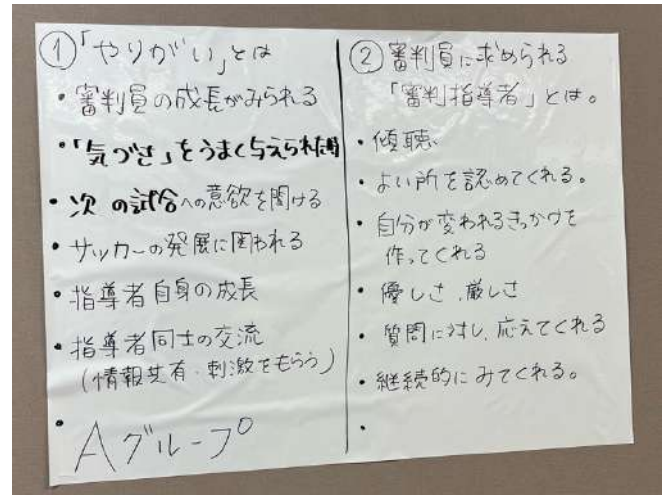 ①「やりがい」とは
・審判員の成長がみられる
・「気づき」をうまく与えられた時
・次の試合への意欲を聞ける
・サッカーの発展に関われる
・指導者自身の成長
・指導者同士の交流
(情報共有・刺激をもらう)
・
Aグループ
②審判員に求められる
「審判指導者」とは。
・傾聴
・よい所を認めてくれる。
・自分が変われるきっかけを
作ってくれる
・優しさ、厳しさ
・質問に対し、応えてくれる
・継続的にみてくれる。
・